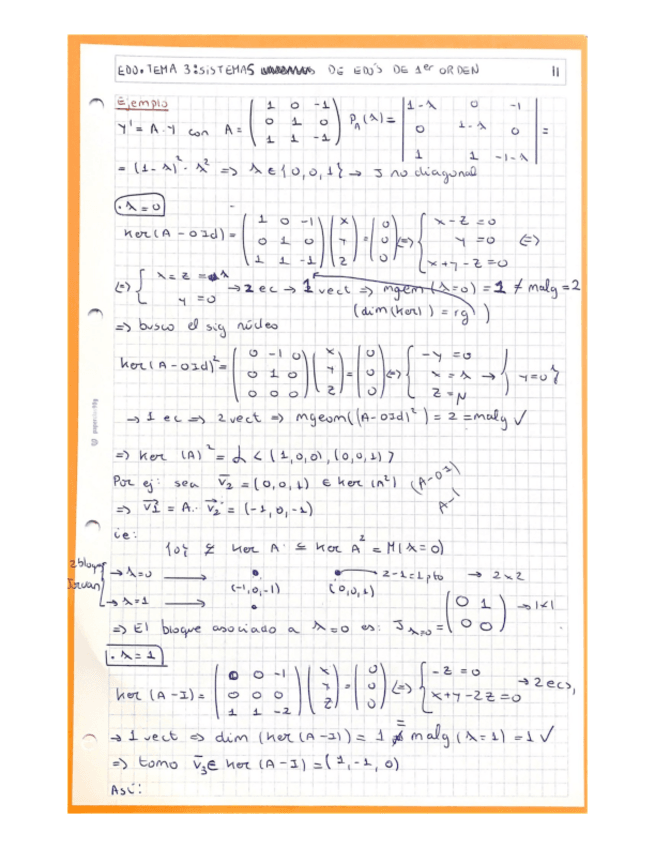 EDO. TEMA 3: SISTEMAS DE EDO'S DE 1er ORDEN 11
Ejemplo
Y' = A·Y con A = ( 1 0 -1 / 0 1 0 / 1 1 -1 ) P_A(λ) = | 1-λ 0 -1 / 0 1-λ 0 / 1 1 -1-λ | =
= (1-λ)² · λ² => λ ∈ {0,0,1} → J no diagonal
· λ = 0
Ker (A - 0Id) = ( 1 0 -1 / 0 1 0 / 1 1 -1 ) ( x / y / z ) = ( 0 / 0 / 0 ) <=> { x - z = 0 / y = 0 / x + y - z = 0 <=>
<=> { x = z = λ / y = 0 → 2 ec → 1 vect => mgem (λ=0) = 1 ≠ malg = 2
(dim(ker) = rg )
=> busco el sig núcleo
Ker (A - 0Id)² = ( 0 -1 0 / 0 1 0 / 0 0 0 ) ( x / y / z ) = ( 0 / 0 / 0 ) <=> { -y = 0 / x = λ → / z = μ } y = 0 }
→ 1 ec => 2 vect => mgeom((A-0Id)²) = 2 = malg ✓
=> Ker (A)² = L < (1,0,0), (0,0,1) >
Por ej: sea v₂ = (0,0,1) ∈ Ker (A²) (A-0I)
=> v1 = A · v₂ = (-1, 0, -1) A-1
ie:
{0} ⊊ Ker A ⊆ Ker A² = M(λ=0)
2 bloques Jordan
→ λ=0 → • • 2-1=1 pto → 2x2
(-1,0,-1) (0,0,1)
→ λ=1 → •
=> El bloque asociado a λ=0 es: J_λ=0 = ( 0 1 / 0 0 ) → 1x1
· λ = 1
Ker (A - I) = ( 0 0 -1 / 0 0 0 / 1 1 -2 ) ( x / y / z ) = ( 0 / 0 / 0 ) <=> { -z = 0 / x + y - 2z = 0 → 2 ecs,
→ 1 vect => dim (Ker (A-I)) = 1 = malg (λ=1) = 1 ✓
=> tomo v₃ ∈ Ker (A-I) = (1, -1, 0)
Así: